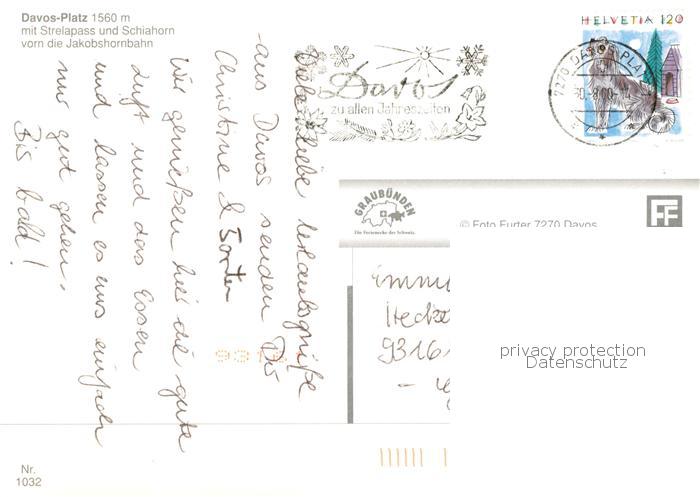 Davos-Platz 1560 m
mit Strelapass und Schiahorn
vorn die Jakobshornbahn
HELVETIA 120
7270 DAVOS PLATZ
Davos
zu allen Jahreszeiten
GRAUBÜNDEN
Die Ferienecke der Schweiz.
© Foto Furter 7270 Davos
FF
Liebe Urlaubsgrüße
aus Davos senden Dir
Christine &
Wir genießen hier die gute
Luft und das Essen
und lassen es uns einfach
nur gut gehen.
Bis bald!
9316
privacy protection
Datenschutz
Nr.
1032